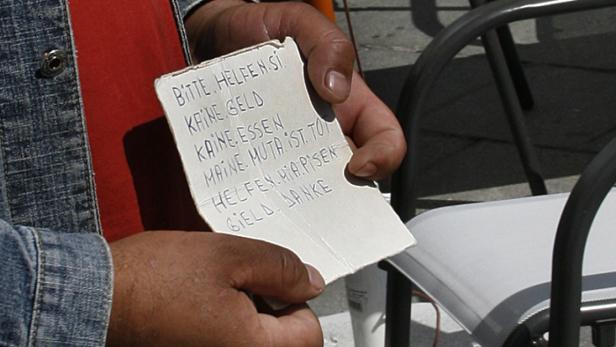 BITTE. HELFEN. SI
KAINE. GELD
KAINE. ESSEN
MAINE. MUTA IST. TOT
HELFEN. MIA. PISEN
GIELD. DANKE